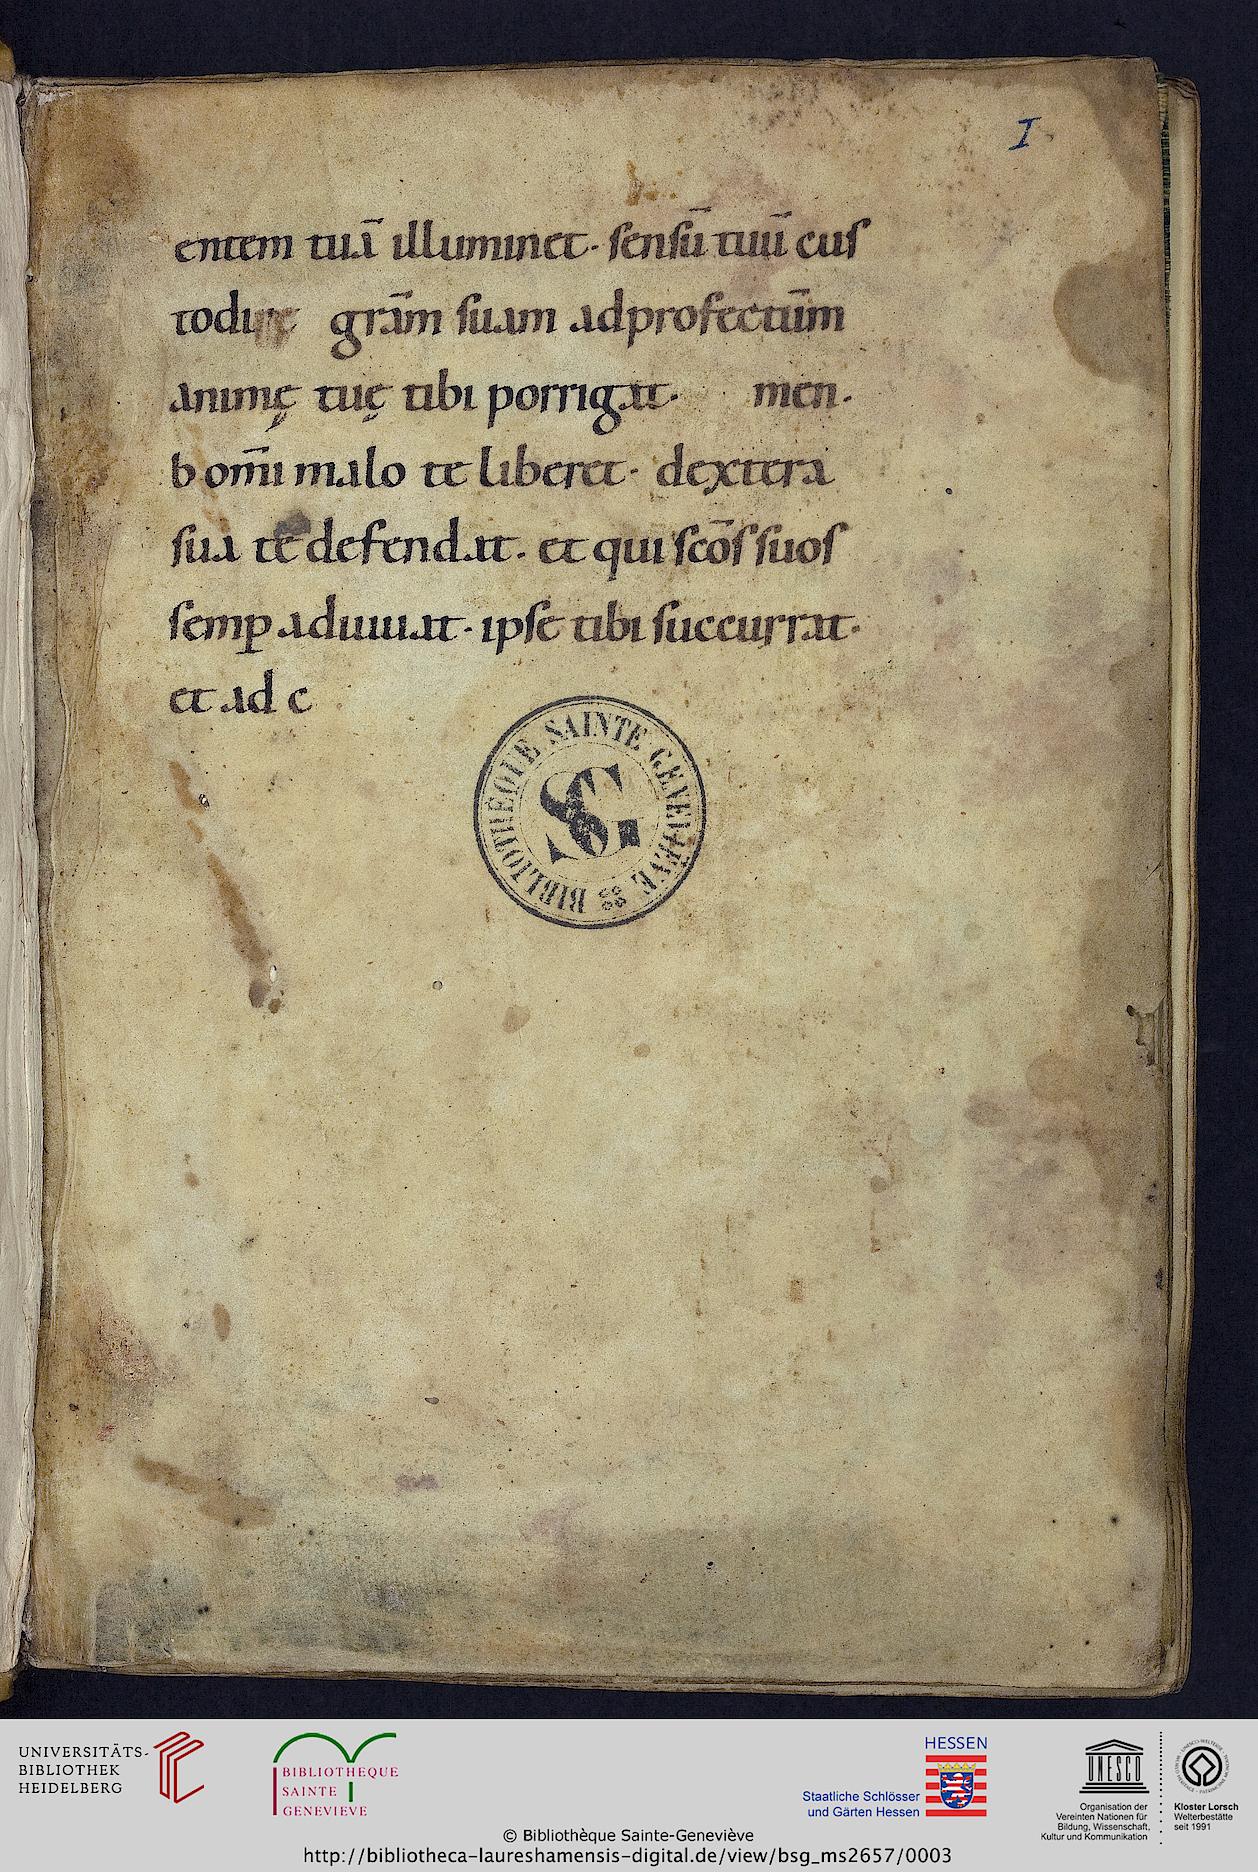 I
entem tuā illuminet· sensū tuū cus
todire grām suam adprofectūm
animę tuę tibi porrigat· men·
b om̄i malo te liberet· dextera
sua te defendat· et qui scōs suos
semꝑ adiuuat· ipse tibi succurrat·
et ad c
BIBLIOTHEQUE SAINTE GENEVIEVE
SG
UNIVERSITÄTS-
BIBLIOTHEK
HEIDELBERG
BIBLIOTHEQUE
SAINTE
GENEVIEVE
HESSEN
Staatliche Schlösser
und Gärten Hessen
UNESCO
Organisation der
Vereinten Nationen für
Bildung, Wissenschaft,
Kultur und Kommunikation
Kloster Lorsch
Welterbestätte
seit 1991
© Bibliothèque Sainte-Geneviève
http://bibliotheca-laureshamensis-digital.de/view/bsg_ms2657/0003